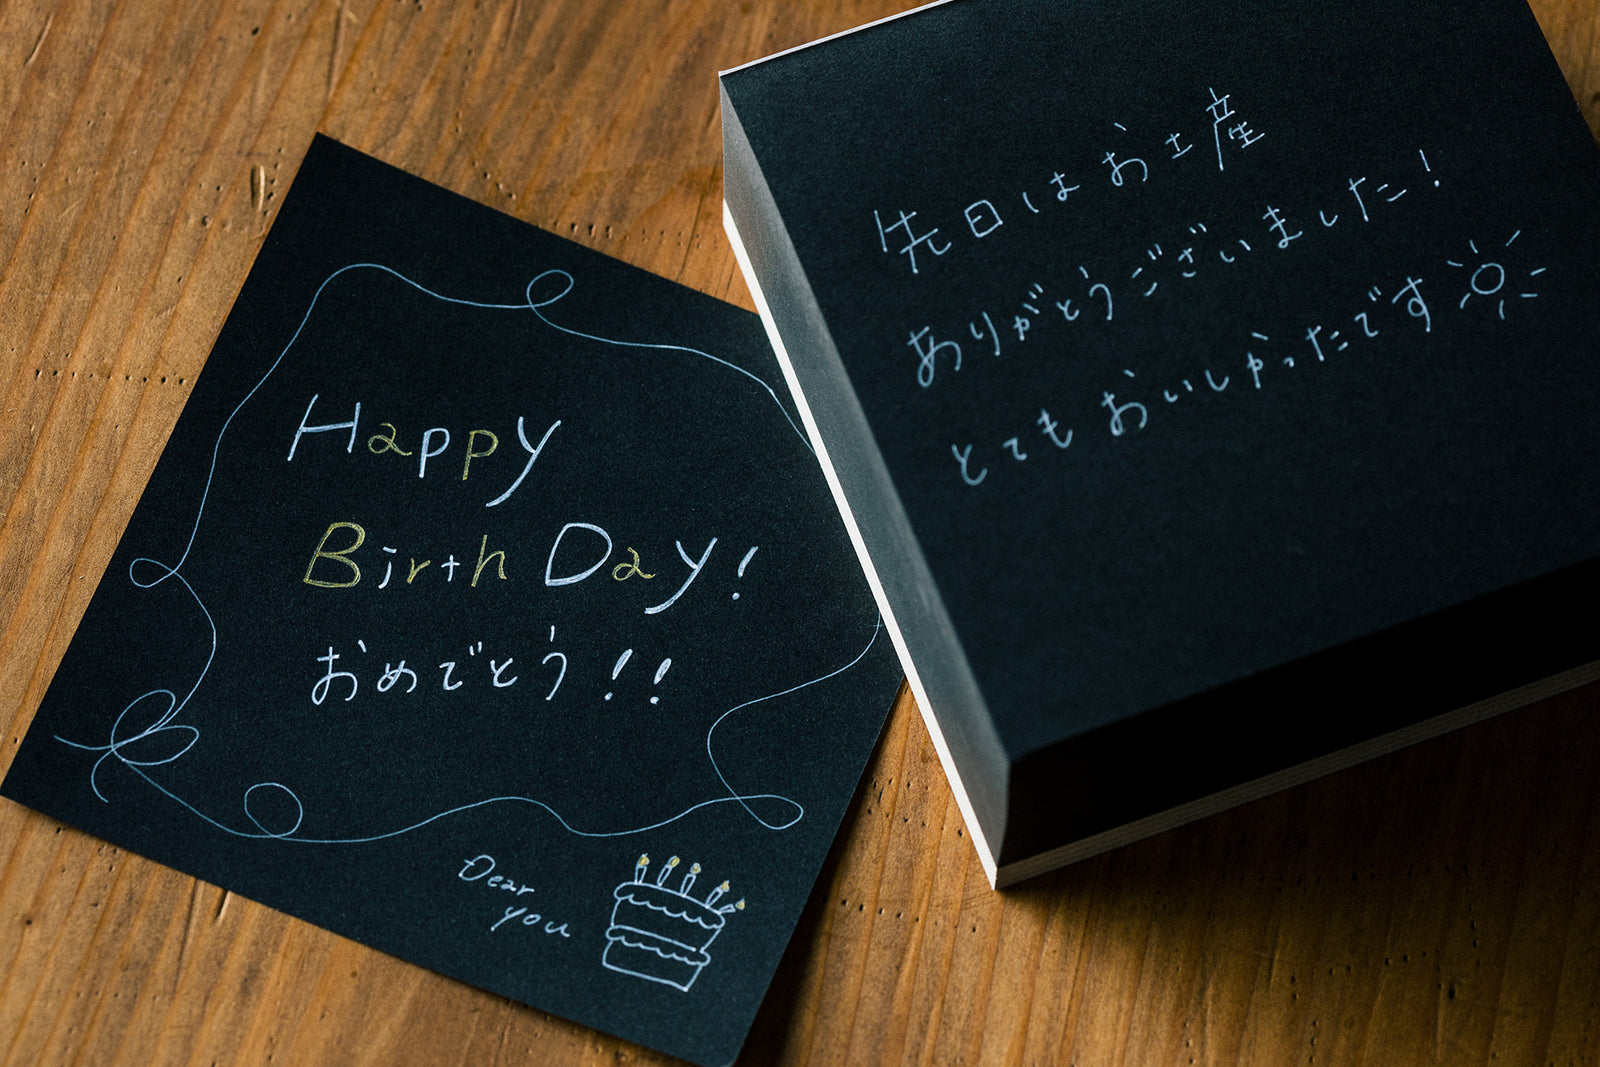 Happy
Birth Day!
おめでとう!!
Dear
you
先日はお土産
ありがとうございました!
とてもおいしかったです